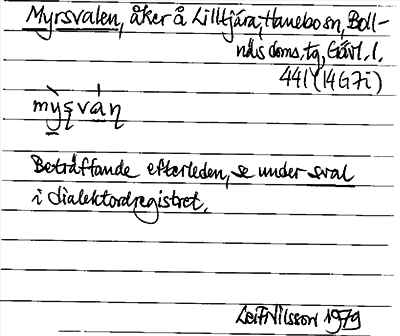 Myrsvalen, åker å Lilltjära, Hanebo sn, Boll-
näs doms. tg, Gävl. l.
441 (14G7i)
mỳșvàṇ
Beträffande efterleden, se under sval
i dialektordregistret.
Leif Nilsson 1979